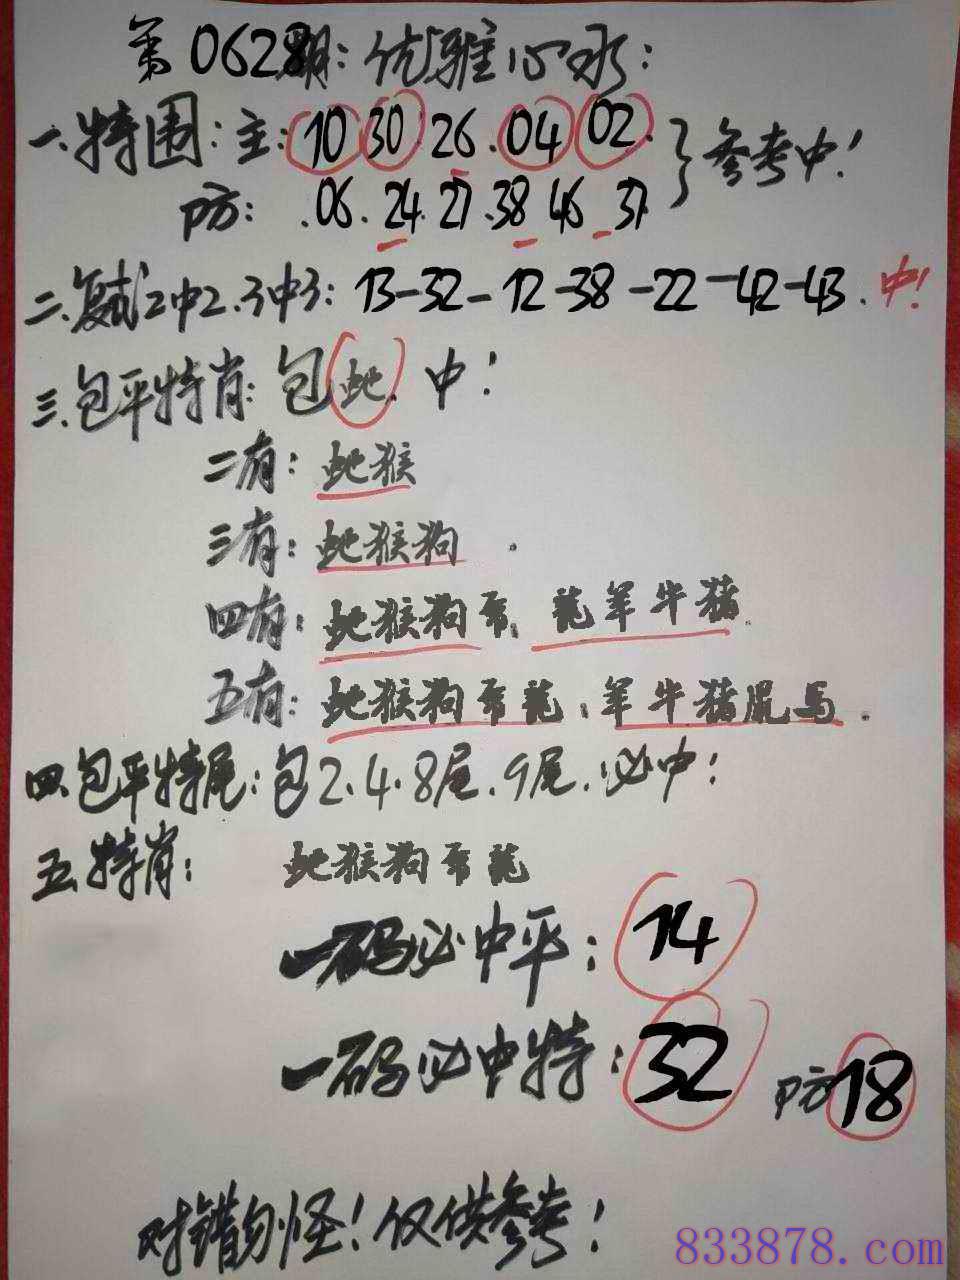 第0628期:优雅心水:
一.特围:主:10 30 26.04 02.}参考中!
防:.06.24.27.38 46.37
二.复试2中2.3中3:13-32-12-38-22-42-43.中!
三.包平特肖:包蛇.中!
二有:蛇猴
三有:蛇猴狗.
四有:蛇猴狗 龍羊牛猪.
五有:蛇猴狗 龍.羊牛猪鼠马.
四.包平特尾:包2.4.8尾.9尾.必中!
五.特肖:蛇猴狗 龍
一码必中平:14
一码必中特:32 防18
对错勿怪!仅供参考!
833878.com